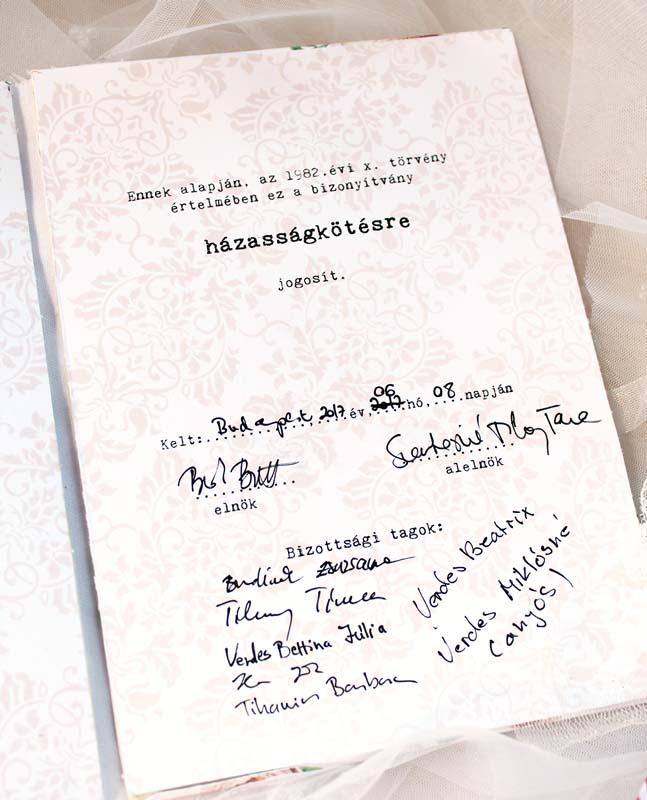 Ennek alapján, az 1982.évi x. törvény
értelmében ez a bizonyítvány
házasságkötésre
jogosít.
Kelt: Budapest 2017 év, 06 hó, 08. napján
elnök
alelnök
Bizottsági tagok:
Zsuzsanna
Tímea
Verdes Bettina Júlia
Barbara
Verdes Beatrix
Verdes Miklósné
(anyós)